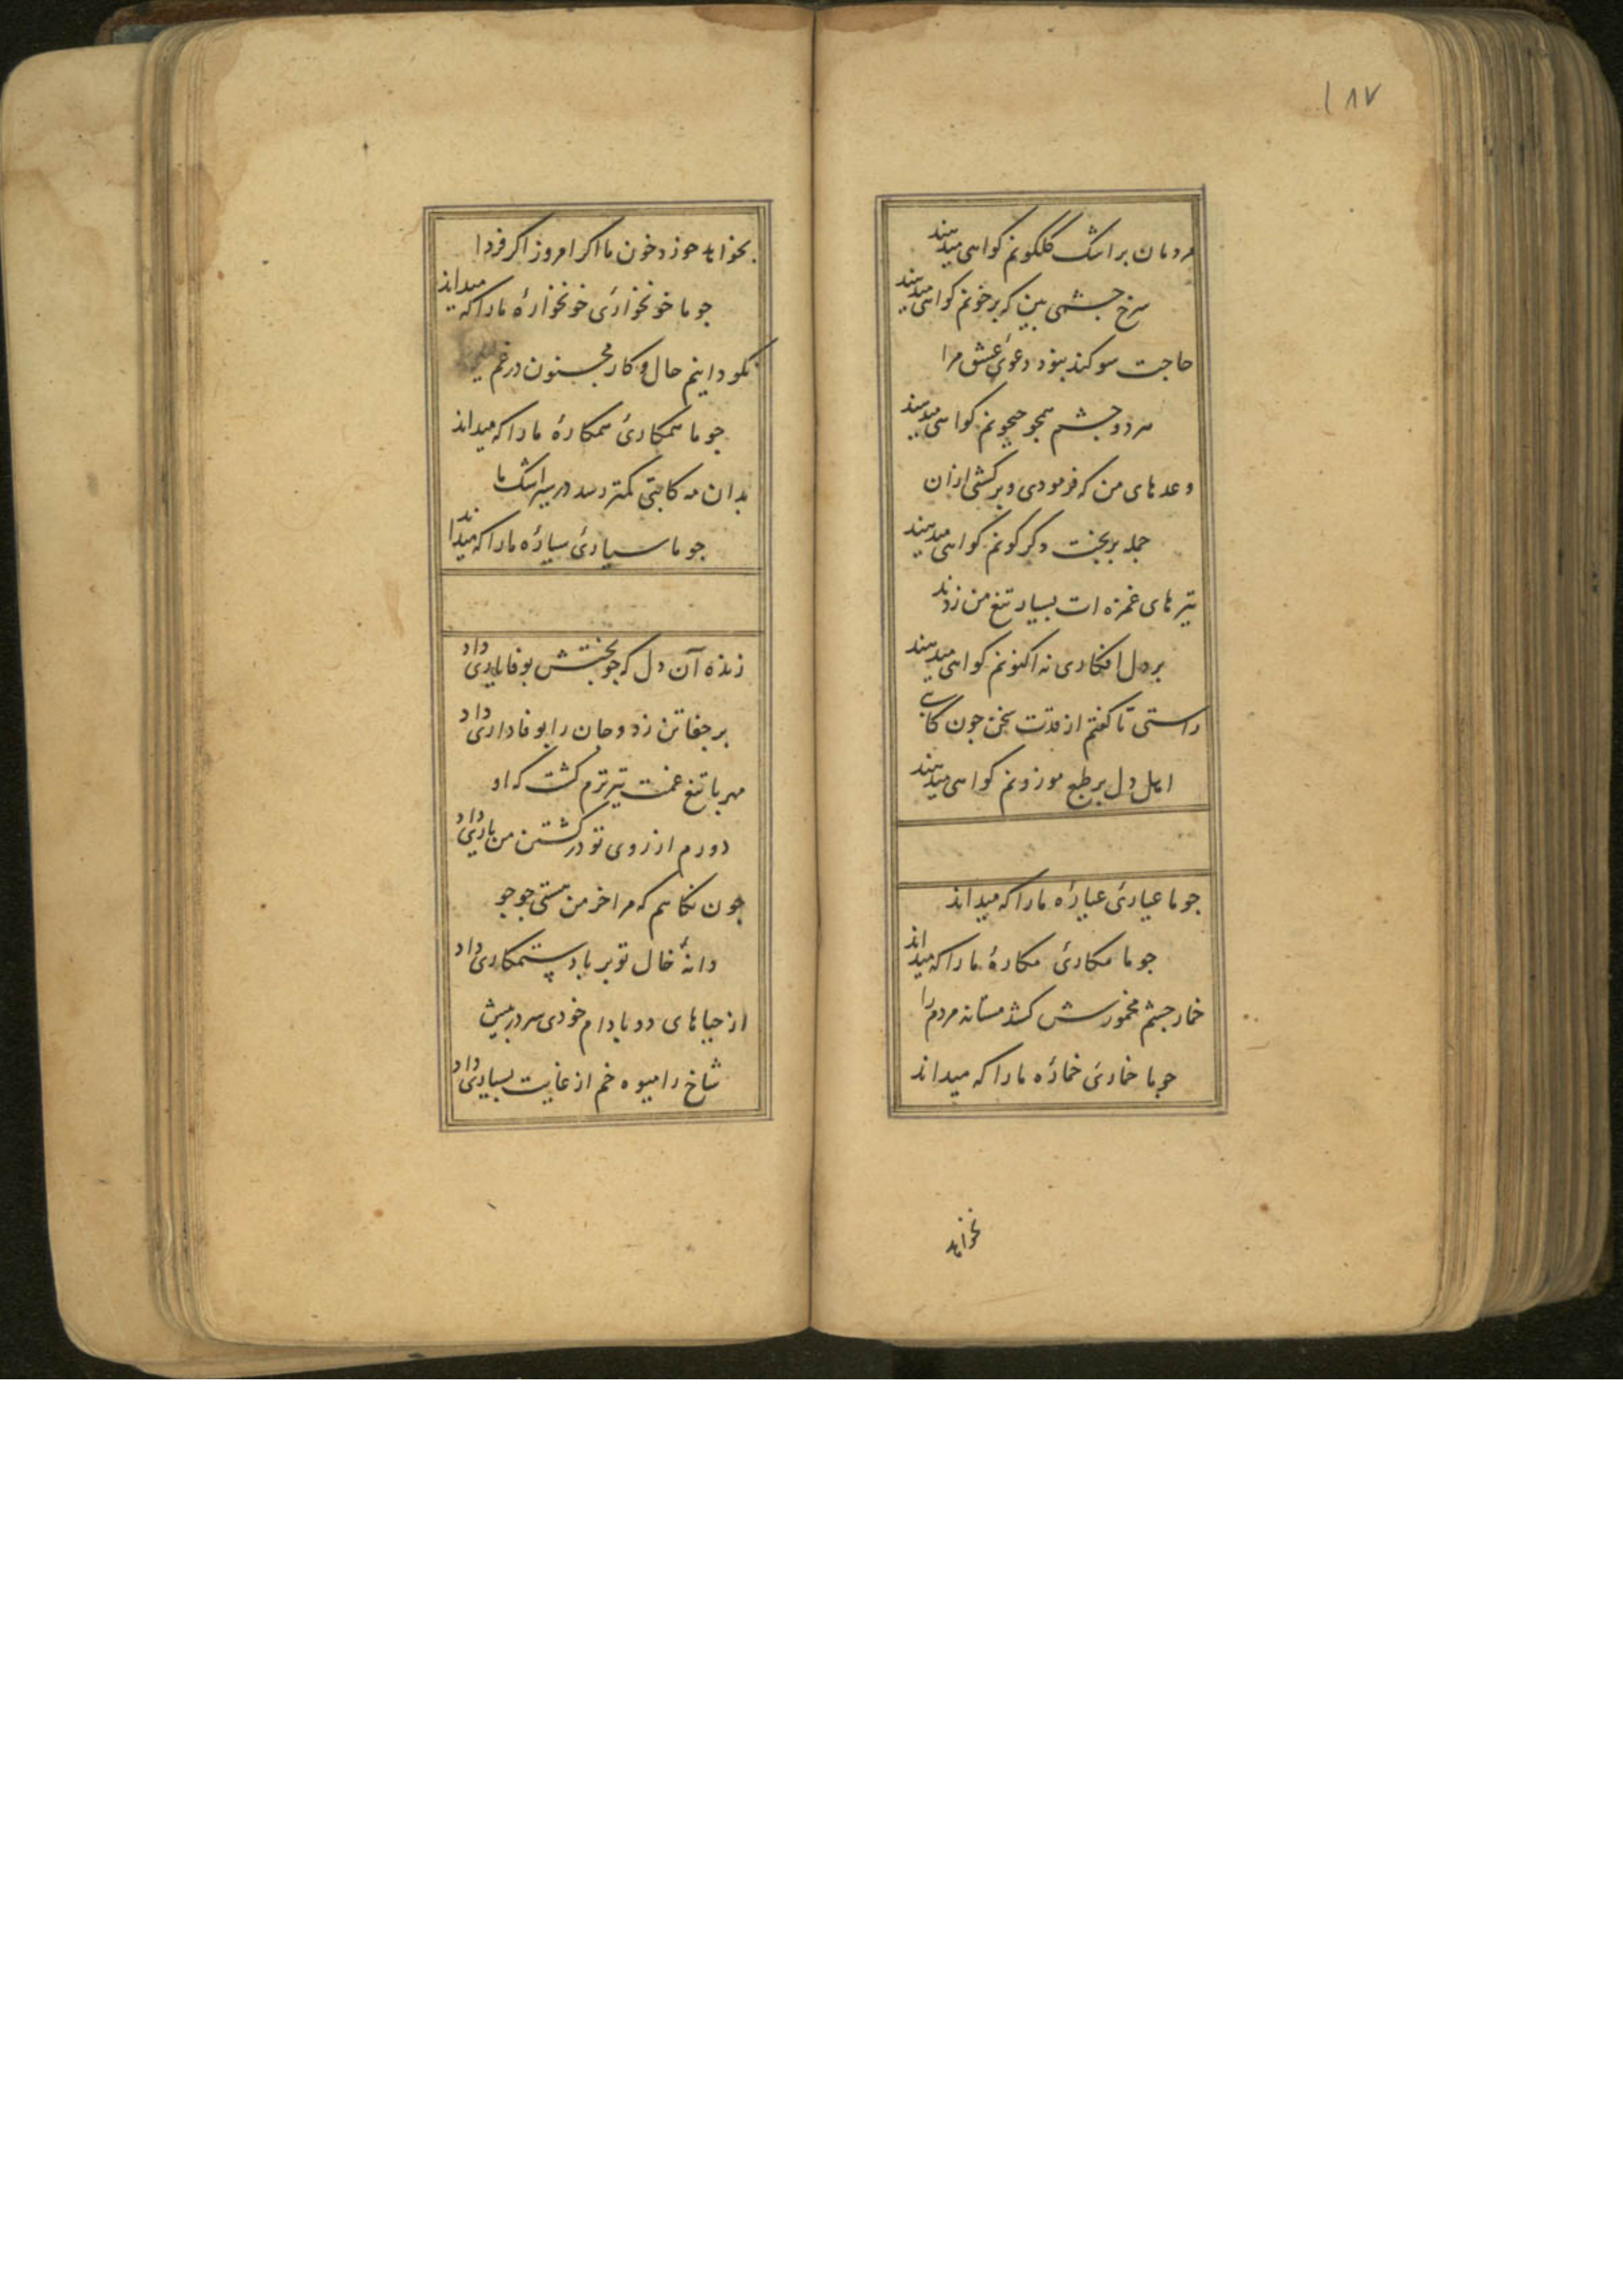 ۱۸۷
مردمان بر اشک گلگونم گواهی میدهند
سرخ چشمی بین که بر خونم گواهی میدهند
حاجت سوکند نبود دعوئ عشق مرا
هر دو چشم همچو جیحونم گواهی میدهند
وعدهای من که فرمودی و برگشتی ازان
جمله بر بخت دگرگونم گواهی میدهند
تیرهای غمزه ات بسیار تیغ من زدند
بر دل افکاری نه اکنونم گواهی میدهند
راستی تا گفتم از قدت سخن جون کاتبی
اهل دل بر طبع موزونم گواهی میدهند
جو ما عیارئ عیارهٔ ما را که میداند
جو ما مکارئ مکارهٔ ما را که میداند
خمار جشم مخمورش کشد مستانه مردم را
جو ما خمارئ خمارهٔ ما را که میداند
نخواهد
بخواهد خورد خون ما اکر امروز اکر فردا
جو ما خونخوارئ خونخوارهٔ ما را که میداند
نکو دانیم حال و کار مجنون در غم
جو ما همکارئ همکارهٔ ما را که میداند
بدان مه کاتبی کمتر رسد در سیر اشک ما
جو ما سیارئ سیارهٔ ما را که میداند
زنده آن دل که جو بختش بوفا یارئ داد
بر جفا تن زد و جان را بوفادارئ داد
مهر با تیغ غمت تیزترم کشت که او
دورم از روی تو در کشتن من یارئ داد
جون نکاهم که مرا خرمن هستی جو جو
دانهٔ خال تو بر باد ستمکارئ داد
از حیاهای دو بادام خودی سر در پیش
شاخ را میوه خم از غایت بسیارئ داد